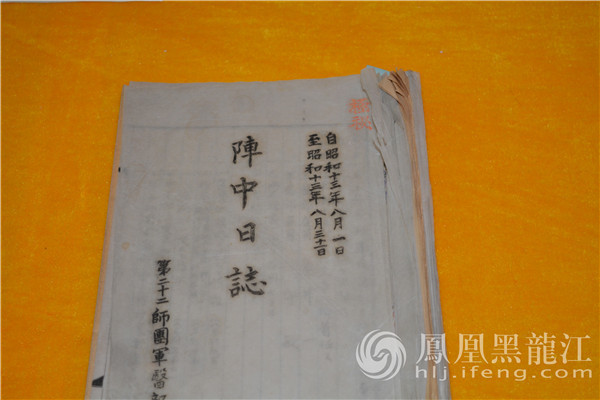 自昭和十三年八月一日
至昭和十三年八月三十一日
陣中日誌
第二十二師團軍醫部
鳳凰黑龍江
hlj.ifeng.com